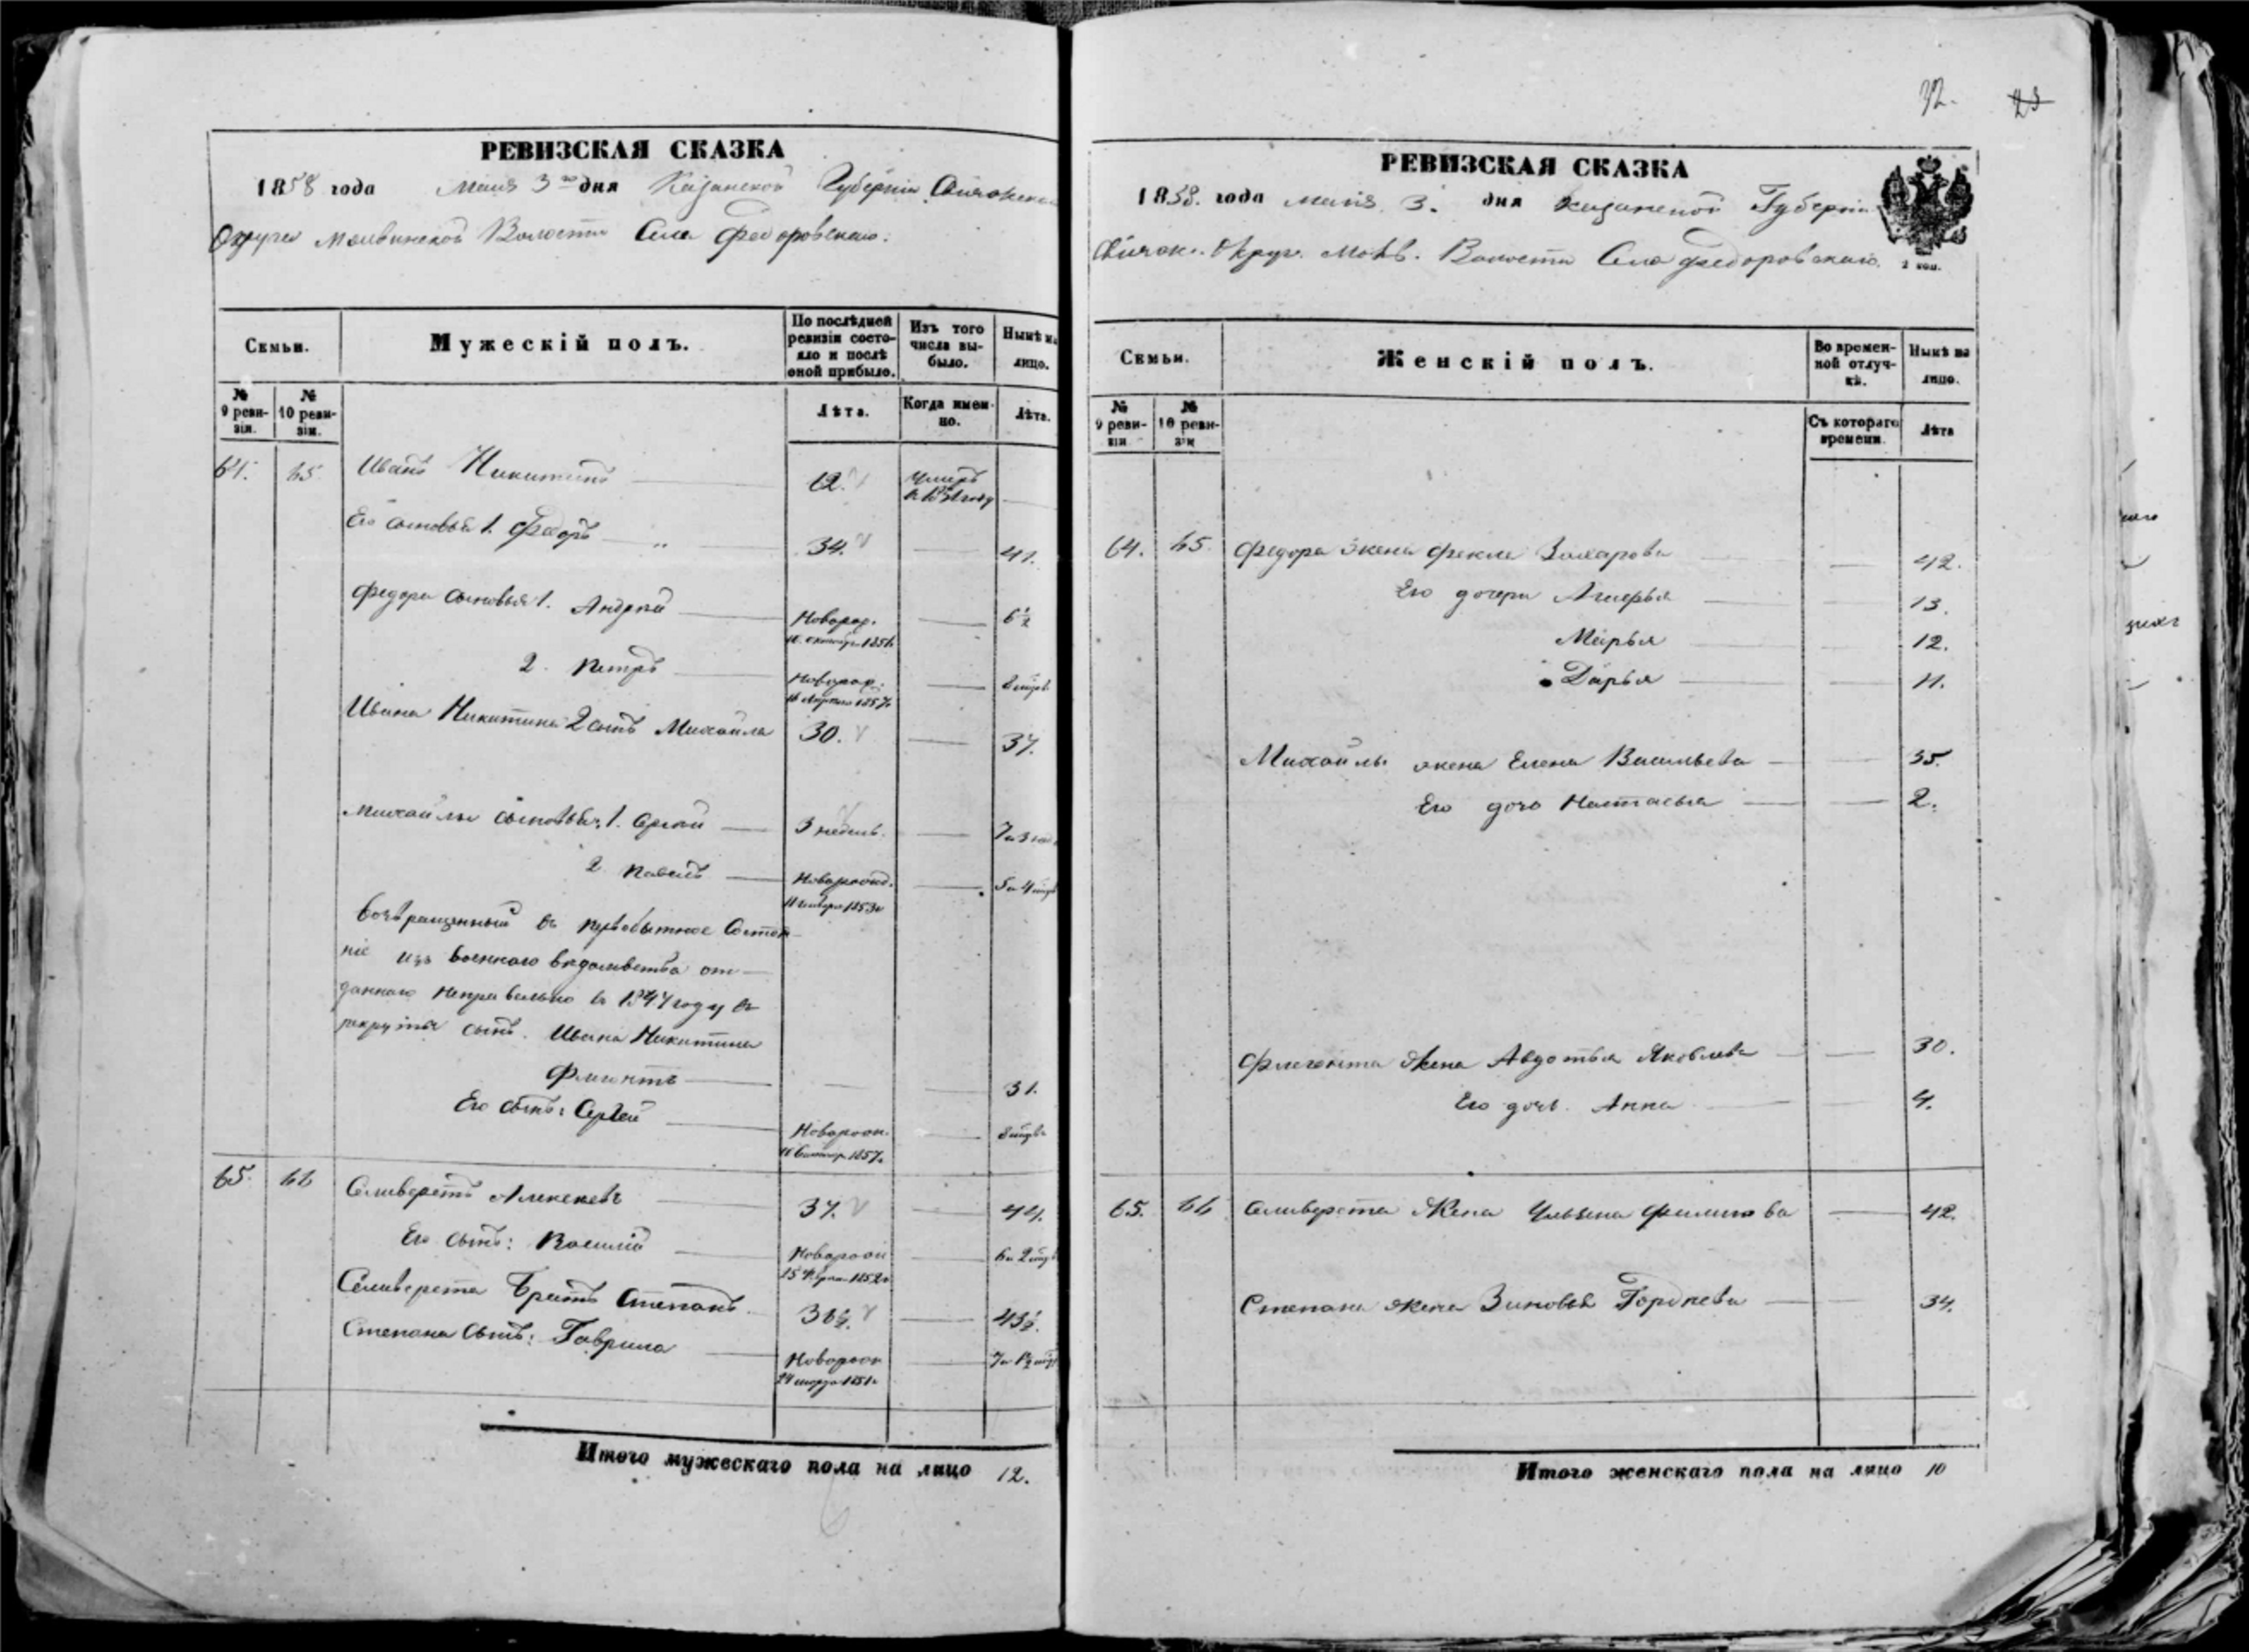 РЕВИЗСКАЯ СКАЗКА
1858 года Маія 3го дня Казанской Губерніи Свіяжскаго
Округа Моквинской Волости Села Федоровскаго.
Семьи.
Мужескій полъ.
По послѣдней ревизіи состояло и послѣ оной прибыло.
Изъ того числа выбыло.
Нынѣ на лицо.
№ 9 ревизіи.
№ 10 ревизіи.
Лѣта.
Когда именно.
Лѣта.
64. 65. Иванъ Никитинъ 62. Умеръ
въ году
Его сыновья 1. Федоръ 34. 41.
Федора сыновья 1. Андрей Новорож. 6½
10 октября 1851г
2. Петръ Новорож. 8 мцвъ
1857г
Ивана Никитина 2 сынъ Михайла 30. 37.
Михайлы сыновья: 1. Сергѣй 3 недель. 7 и 3 нед
2. Павелъ Новорожд. 5 и 4 мцв
11 генваря 1853г
Возвращенный въ первобытное Состоя-
ніе изъ военнаго вѣдомства от-
даннаго неправильно въ 1847 году въ
рекруты сынъ. Ивана Никитина
Флегонтъ 31.
Его сынъ: Сергѣй Новорож. 8 мцвъ
1857г
65. 66 Селиверстъ Алексѣевъ 37. 44.
Его сынъ: Василій Новорож 6 и 2 мцв
15 Февр. 1852г
Селиверста братъ Степанъ 36½. 43½.
Степана сынъ: Гаврила Новорож 7 и 1½ мцв
24 марта 1851г
Итого мужескаго пола на лицо 12.
32. 23
РЕВИЗСКАЯ СКАЗКА
1858. года Маія 3. дня Казанской Губерніи
Свіяж. Округ. Мокв. Волости Села Федоровскаго.
2 коп.
Семьи.
Женскій полъ.
Во временной отлучкѣ.
Нынѣ на лицо.
№ 9 ревизіи
№ 10 ревизіи
Съ котораго времени.
Лѣта
64. 65. Федора жена Фекла Захарова 42.
Его дочери 13.
Марья 12.
Дарья 11.
Михайлы жена Елена Васильева 35.
Его дочь Настасья 2.
Флегонта жена Авдотья Яковлева 30.
Его дочь. Анна 4.
65. 66 Селиверста жена Ульяна Филипова 42.
Степана жена Зиновья Гордѣева 34.
Итого женскаго пола на лицо 10